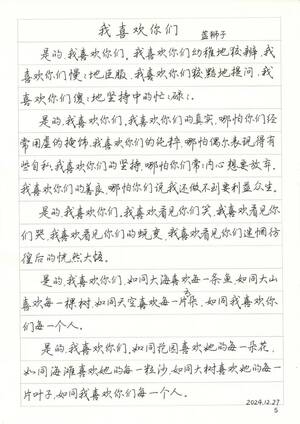 我喜欢你们
蓝狮子
是的,我喜欢你们,我喜欢你们幼稚地狡辩,我
喜欢你们慢慢地臣服,我喜欢你们狡黠地提问,我
喜欢你们傻傻地坚持中的忙忙碌碌。
是的,我喜欢你们,我喜欢你们的真实,哪怕你们经
常用虚伪掩饰,我喜欢你们的纯粹,哪怕偶尔表现得有
些自私,我喜欢你们的坚持,哪怕你们常常内心想要放弃,
我喜欢你们的善良,哪怕你们说我还做不到要利益众生。
是的,我喜欢你们,我喜欢看见你们笑,我喜欢看见你
们哭,我喜欢看见你们的蜕变,我喜欢看见你们迷惘彷
徨后的恍然大悟。
是的,我喜欢你们,如同大海喜欢每一条鱼,如同大山
喜欢每一棵树,如同天空喜欢每一片云,如同我喜欢你
们每一个人。
是的,我喜欢你们,如同花园喜欢她的每一朵花,
如同海滩喜欢她的每一粒沙,如同大树喜欢她的每一
片叶子,如同我喜欢你们每一个人。
2024.12.27
5